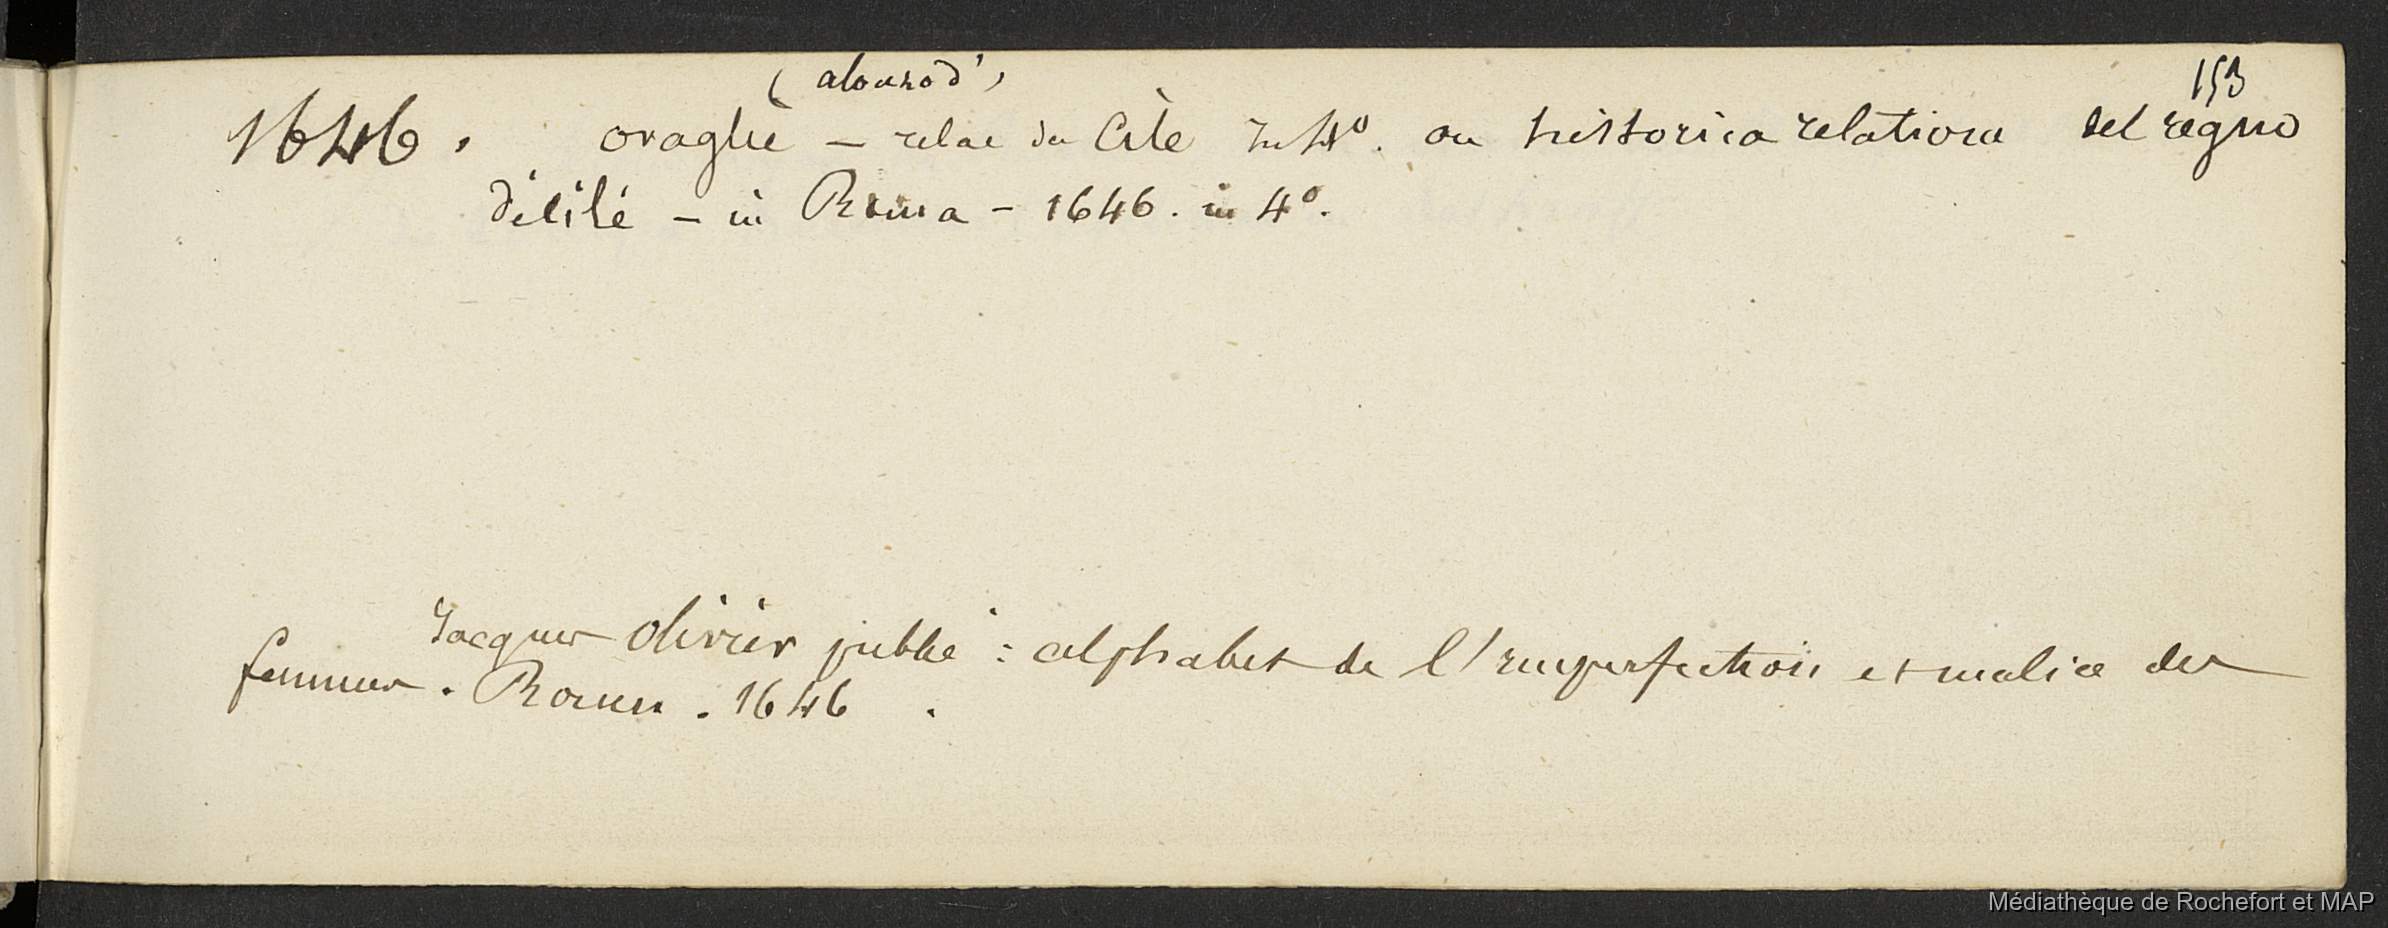 153
( alonzo d' )
1646. ovaglie — relac du Cile in 4º. ou historica relatione del regno
di cile — in Roma — 1646. in 4º.
Jacques olivier publie : alphabet de l'imperfection et malice des
femmes. Rouen. 1646.
Médiathèque de Rochefort et MAP